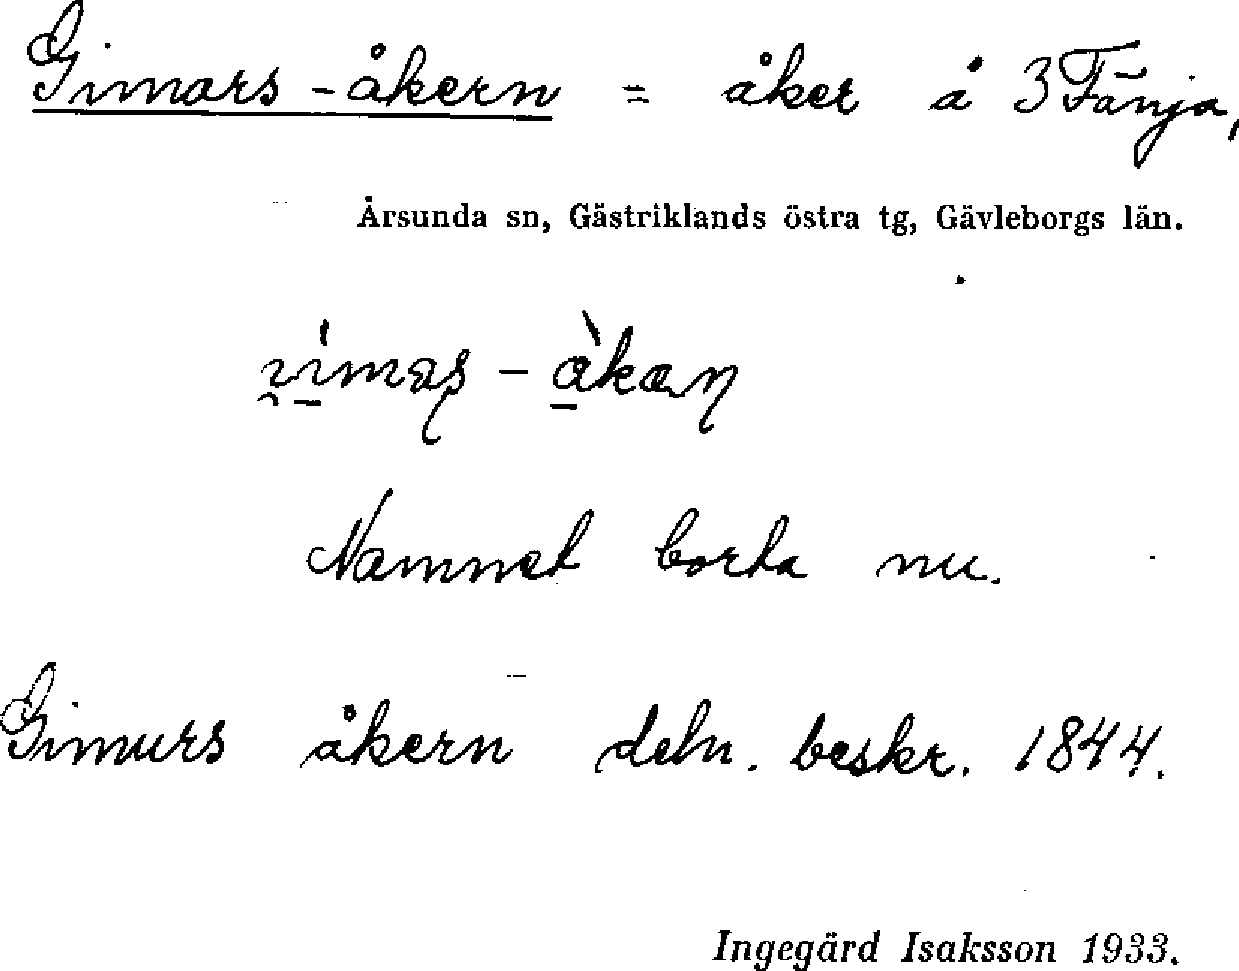 Gimars-åkern = åker å 3 Fänja,
Årsunda sn, Gästriklands östra tg, Gävleborgs län.
Namnet borta nu.
Gimurs åkern deln. beskr. 1844.
Ingegärd Isaksson 1933.